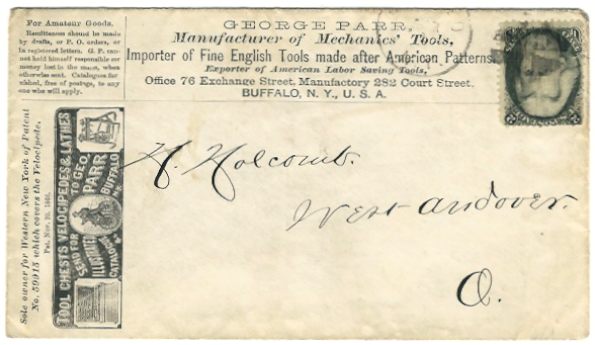 For Amateur Goods.
Remittances should be made
by drafts, or P. O. orders, or
in registered letters. G. P. can-
not hold himself responsible for
money lost in the mass, when
otherwise sent. Catalogues fur-
nished, free of postage, to any
one who will apply.
GEORGE PARR,
Manufacturer of Mechanics' Tools,
Importer of Fine English Tools made after American Patterns.
Exporter of American Labor Saving Tools,
Office 76 Exchange Street, Manufactory 282 Court Street,
BUFFALO, N. Y., U. S. A.
Sole owner for Western New York of Patent
No. 59915 which covers the Velocipede,
Pat. Nov. 20, 1866.
TOOL CHESTS VELOCIPEDES & LATHES
SEND FOR TO GEO.
PARR
ILLUSTRATED BUFFALO
CATALOGUE N.Y.
H. Holcomb.
West Andover.
O.